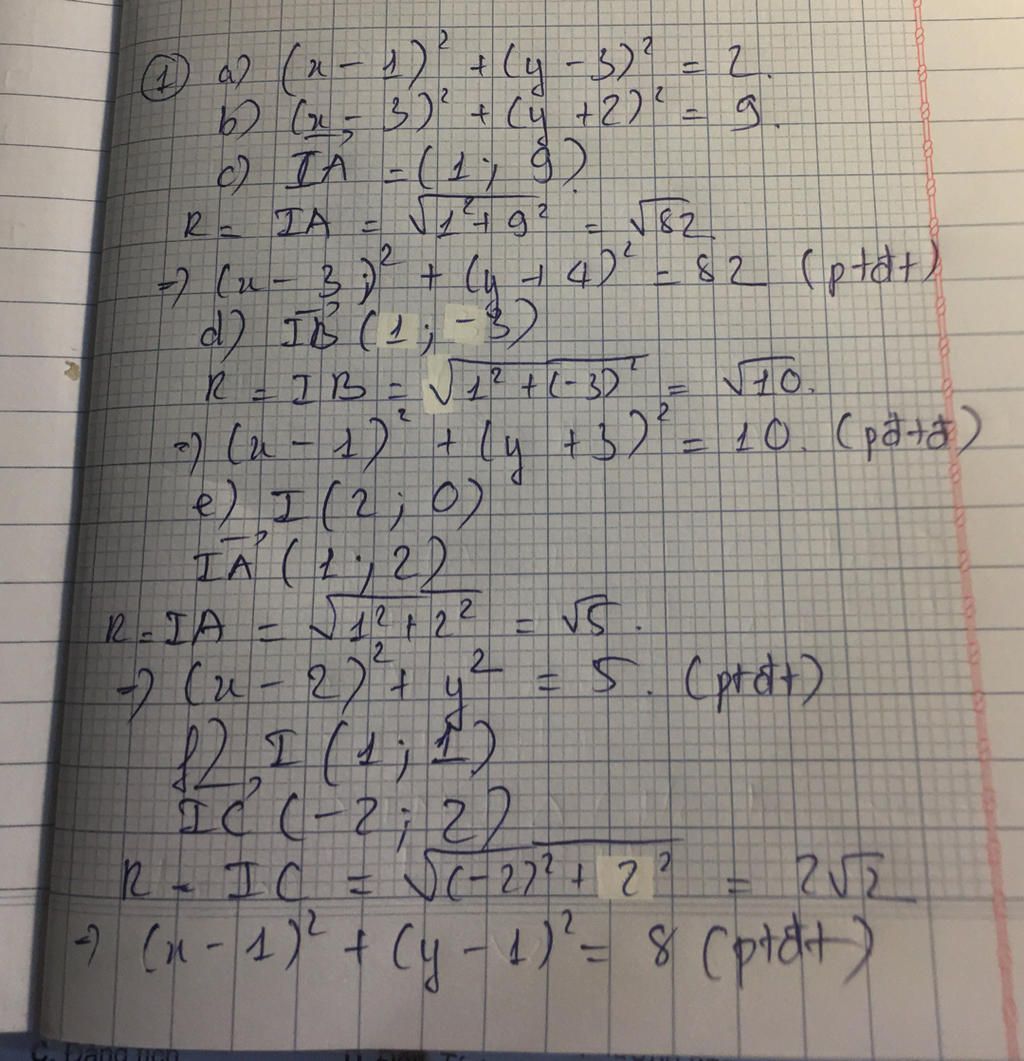 ① a) (x - 1)² + (y - 3)² = 2.
b) (x - 3)² + (y + 2)² = 9.
c) IA⃗ = (1; 9)
R = IA = √(1² + 9²) = √82
=> (x - 3)² + (y + 4)² = 82 (ptđt)
d) IB⃗ (1; -3)
R = IB = √(1² + (-3)²) = √10.
=> (x - 1)² + (y + 3)² = 10. (pđtđ)
e) I (2; 0)
IA⃗ (1; 2)
R = IA = √(1² + 2²) = √5.
=> (x - 2)² + y² = 5. (ptđt)
f) I (1; 1)
IC⃗ (-2; 2)
R = IC = √((-2)² + 2²) = 2√2
=> (x - 1)² + (y - 1)² = 8 (ptđt)